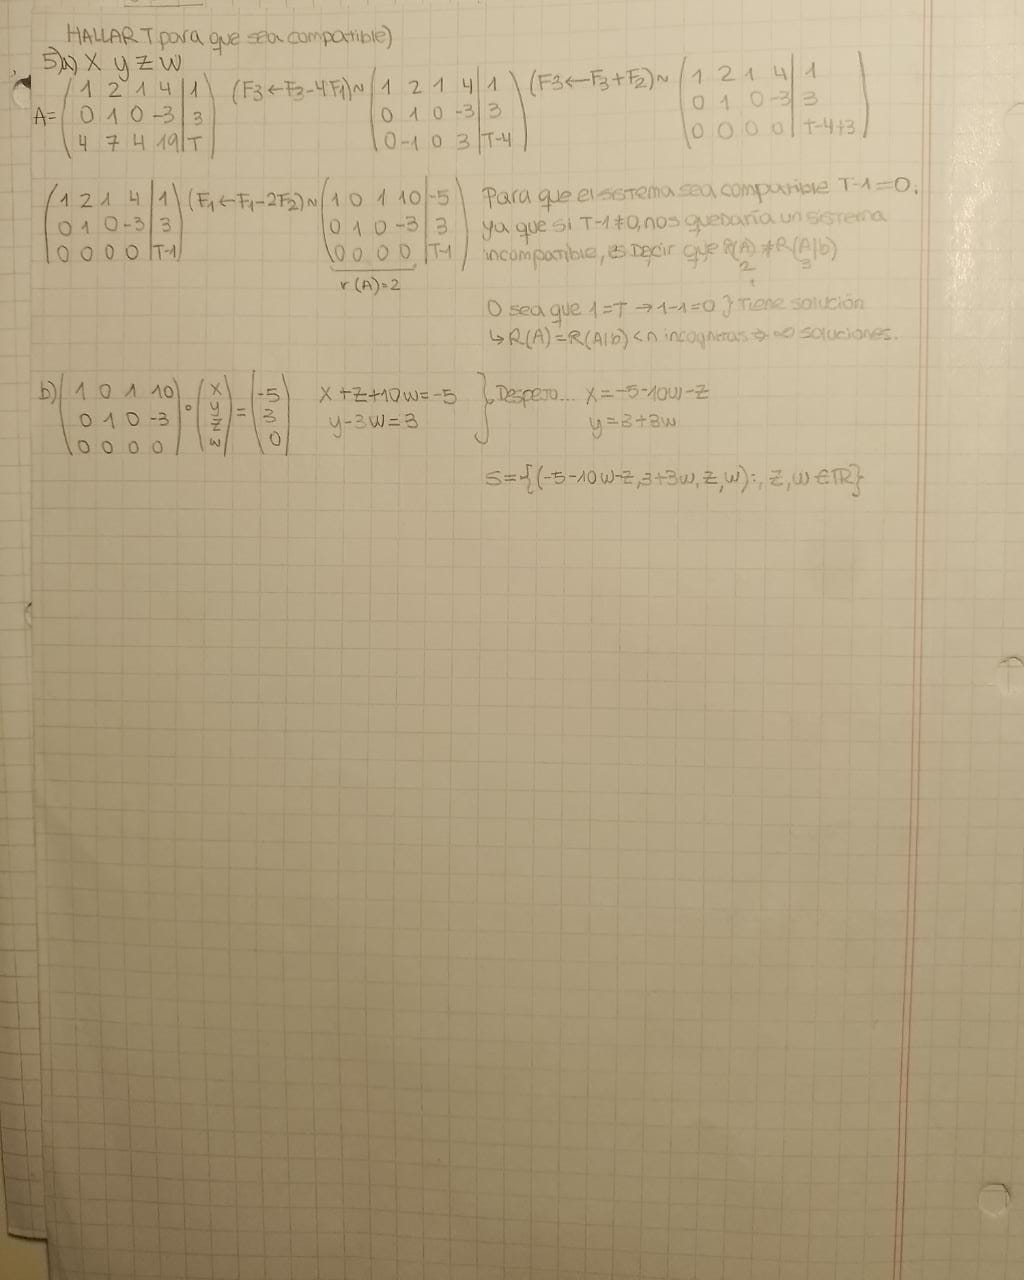 HALLAR T para que sea compatible)
5)a) X y z w
A= (1 2 1 4 | 1; 0 1 0 -3 | 3; 4 7 4 19 | T) (F3←F3-4F1)~ (1 2 1 4 | 1; 0 1 0 -3 | 3; 0 -1 0 3 | T-4) (F3←F3+F2)~ (1 2 1 4 | 1; 0 1 0 -3 | 3; 0 0 0 0 | T-4+3)
(1 2 1 4 | 1; 0 1 0 -3 | 3; 0 0 0 0 | T-1) (F1←F1-2F2)~ (1 0 1 10 | -5; 0 1 0 -3 | 3; 0 0 0 0 | T-1)
r(A)=2
Para que el sistema sea compatible T-1=0,
ya que si T-1≠0, nos quedaría un sistema
incompatible, es Decir que R(A)≠R(A|b)
2 3
O sea que 1=T → 1-1=0 } Tiene solución
↳ R(A)=R(A|b)<n incognitas ⇒ ∞ soluciones.
b) (1 0 1 10; 0 1 0 -3; 0 0 0 0) · (x; y; z; w) = (-5; 3; 0)
x+z+10w=-5
y-3w=3
} Despejo... x=-5-10w-z
y=3+3w
S={(-5-10w-z, 3+3w, z, w):, z, w ∈ ℝ}